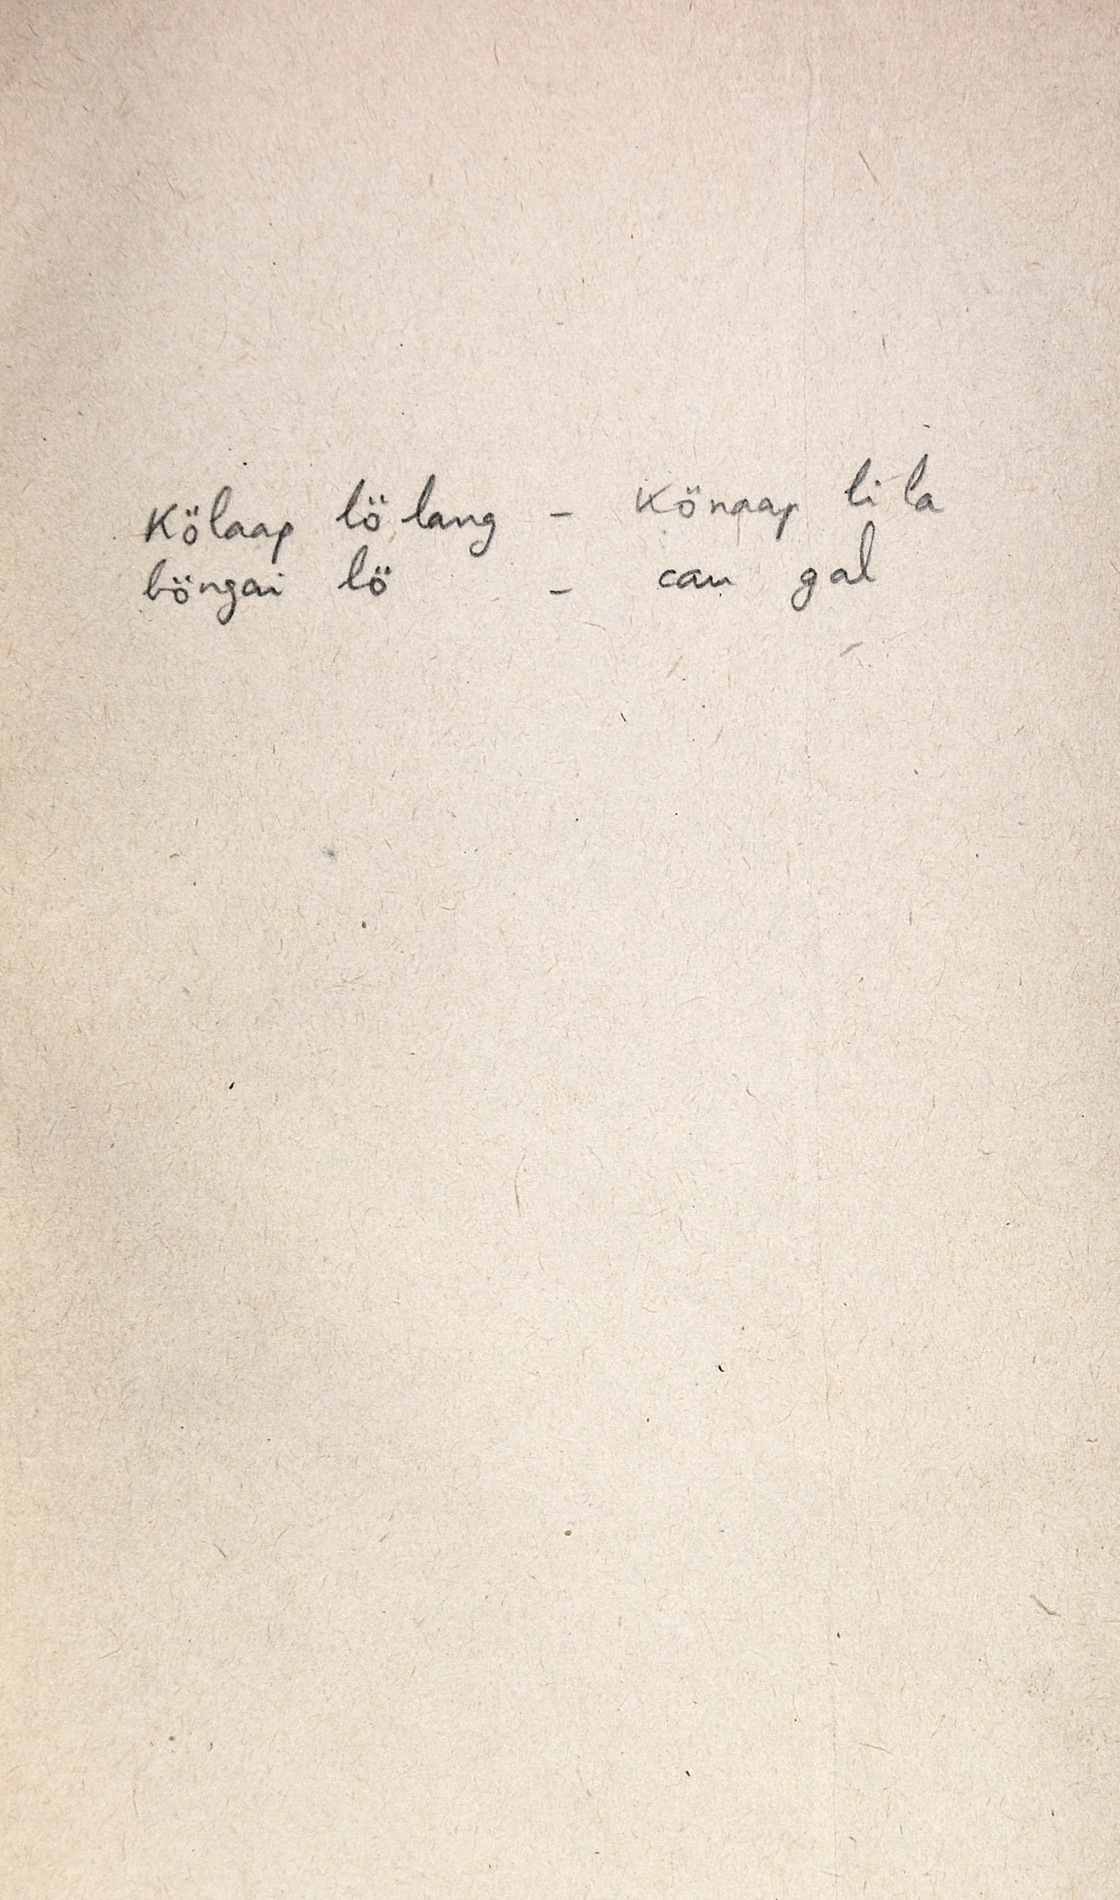 Kölaap lö lang – Könaap li la
böngai lö – cau gal